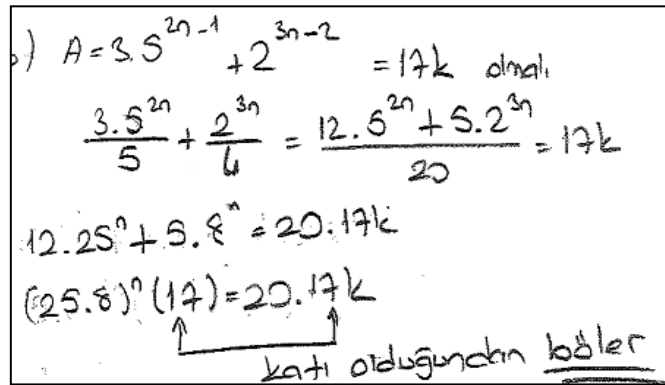 ) A = 3.5^{2n-1} + 2^{3n-2} = 17k olmalı
\frac{3.5^{2n}}{5} + \frac{2^{3n}}{4} = \frac{12.5^{2n} + 5.2^{3n}}{20} = 17k
12.25^n + 5.8^n = 20.17k
(25.8)^n (17) = 20.17k
katı olduğundan böler